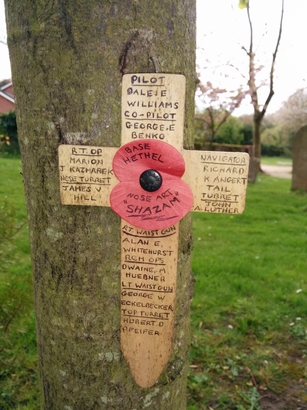 PILOT
DALE.E
WILLIAMS
CO-PILOT
GEORGE.E
BENKO
BASE
HETHEL
NOSE ART
"SHAZAM"
R.T. OP
MARION
T KATHAREK
NOSE TURRET
JAMES V
HALL
NAVIGATOR
RICHARD
K ANGERT
TAIL
TURRET
JOHN
A. LUTHER
RT WAIST GUN
ALAN E.
WHITEHURST
RCM OPS
DWAINE. M
HUEBNER
LT WAIST GUN
GEORGE W
ECKELBECKER
TOP TURRET
ROBERT O
PFEIFER